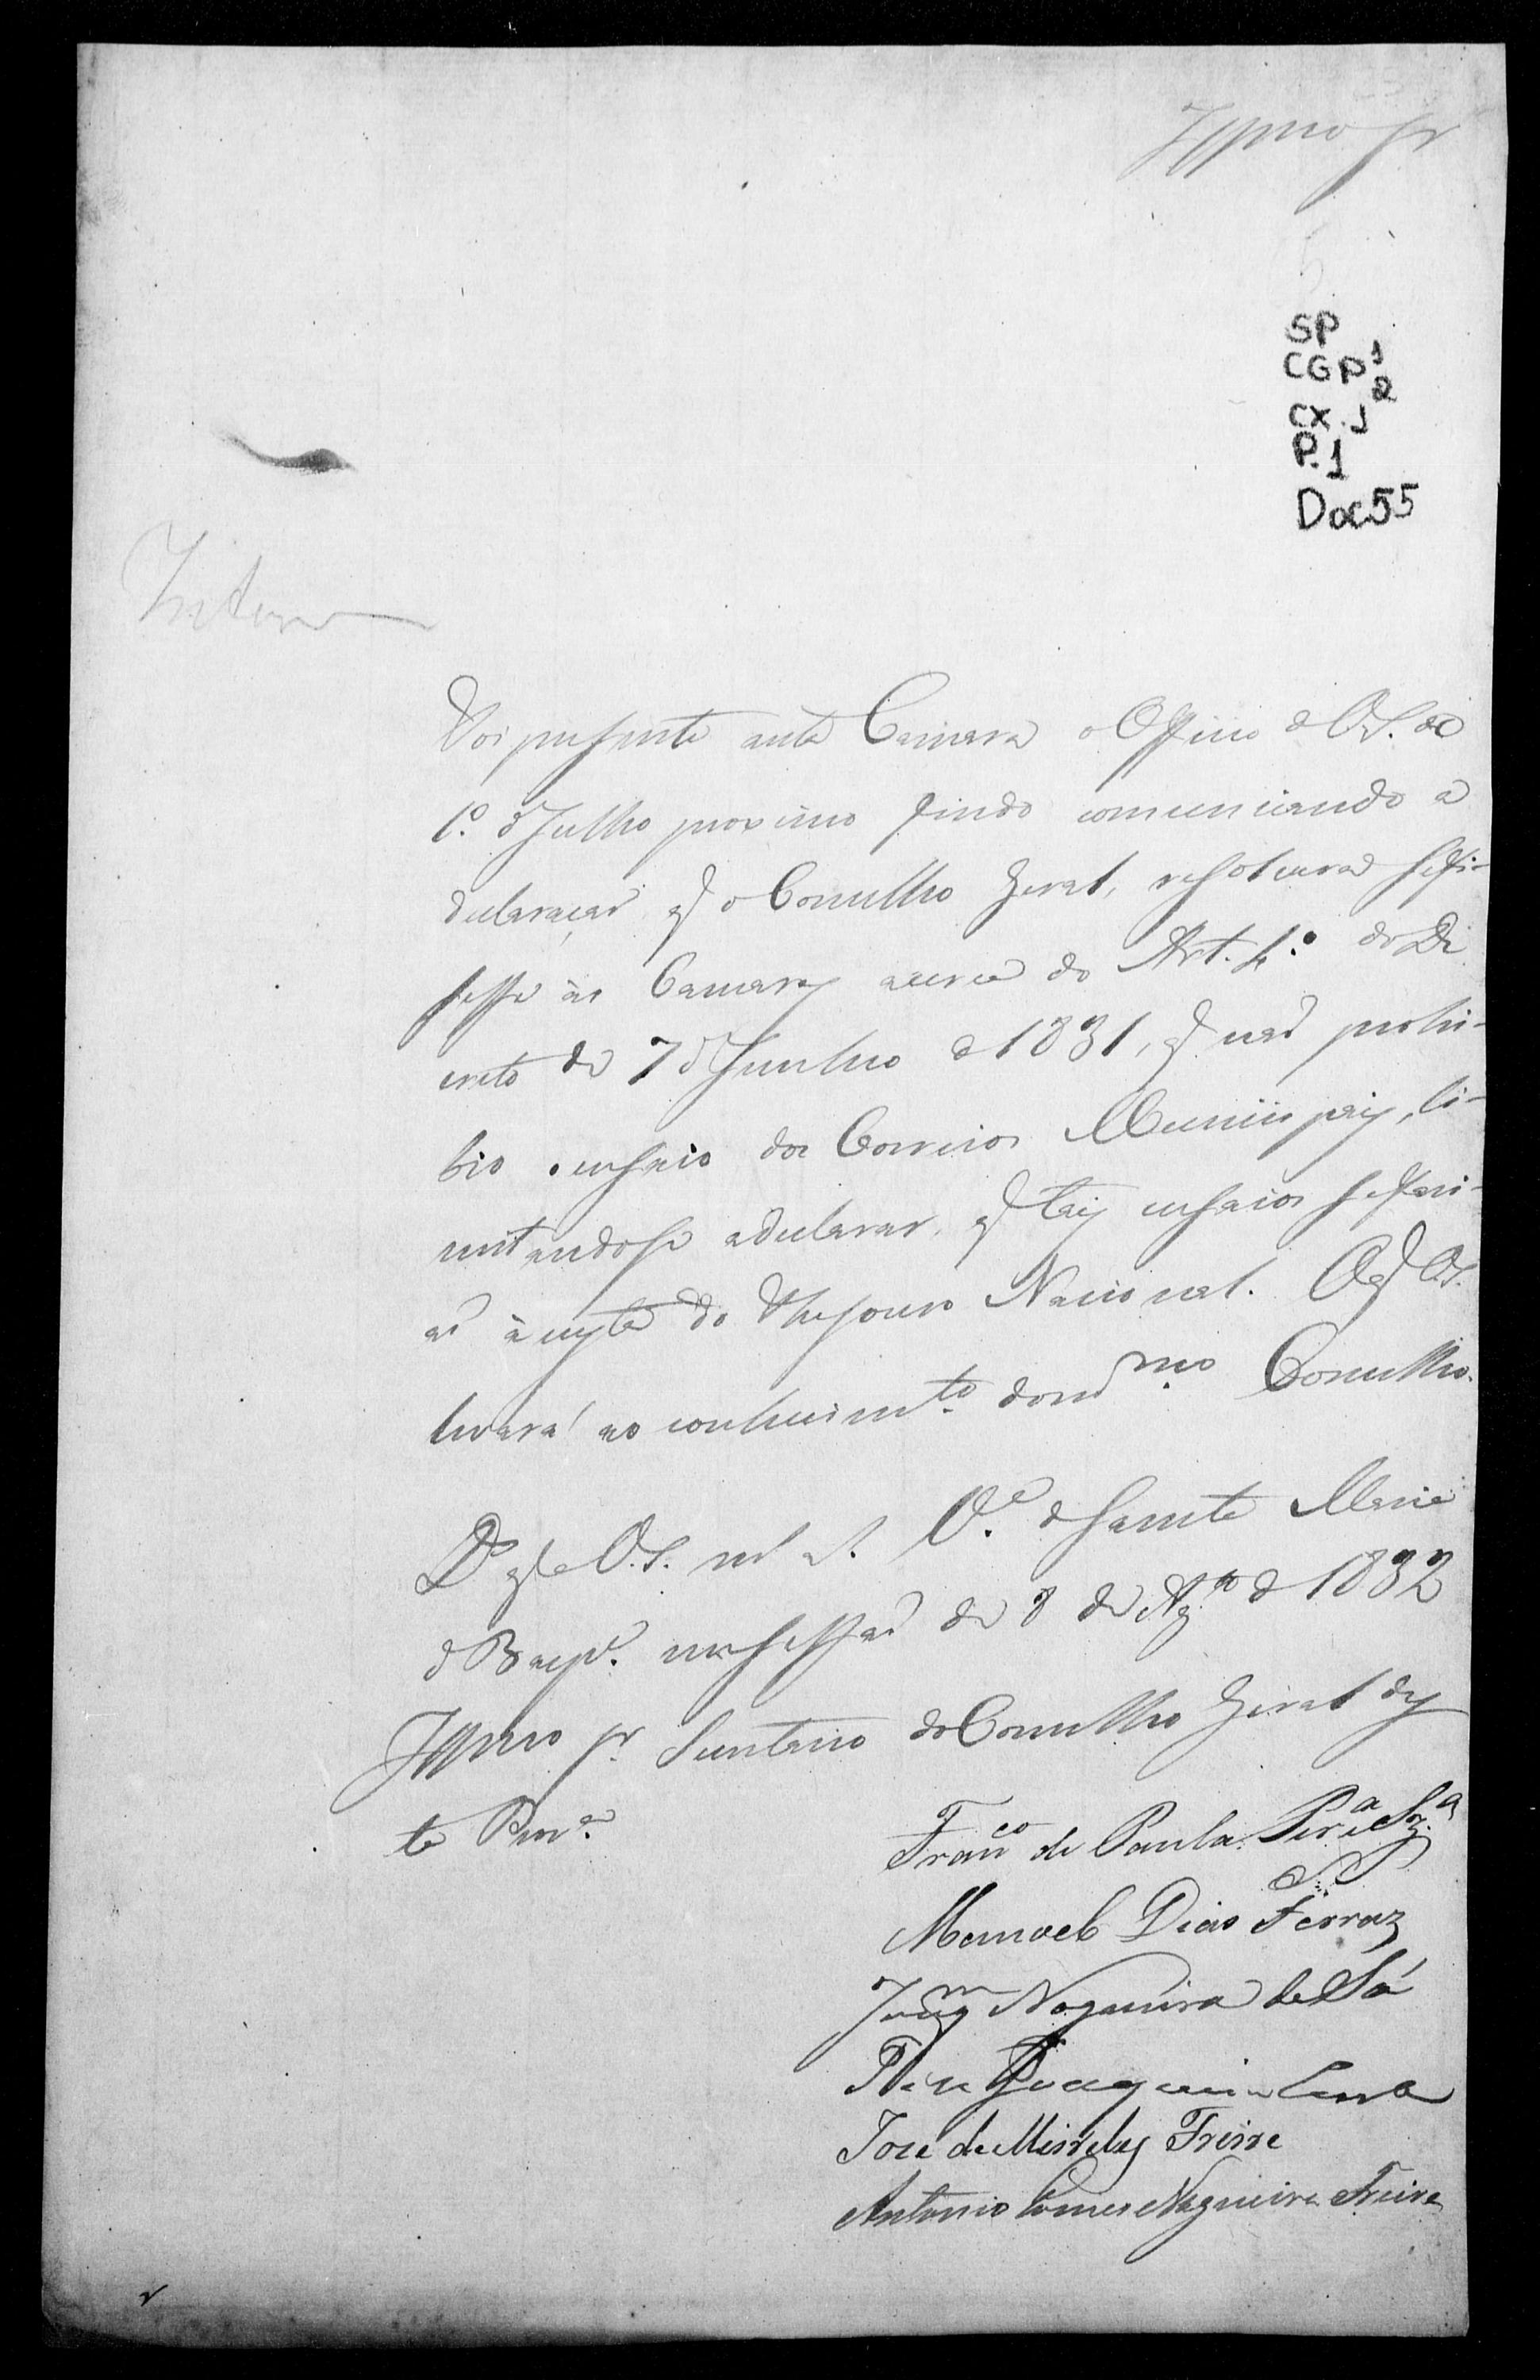 Illmo Sr
SP
CGP 1
2
CX. 1
P. 1
Doc 55
Foi presente a esta Camara o Officio de V.S. de
1.º d'Julho proximo findo comunicando a
declaraçaõ q o Conselho Geral, resolvera se fi-
sesse às Camaras acerca do Art. 4.º do De
creto de 7 d'Junho de 1831, q naõ prohi-
bio o ensaio dos Correios Municipaes, li-
mitandose a declarar, q taes ensaios se fari-
aõ à custa do Thesouro Nacional. O q V.S.
levará ao conhecim.to do m.mo Conselho.
D.s g.e a V.S. m.s a.s V.ª de Santa Maria
d Baep.di em sessaõ de 8 de Ag.to de 1832
Illmo Sr. Secretario do Conselho Geral des
ta Prov.ª
Fran.co de Paula Per.ª e Sz.ª
Manoel Dias Ferraz
Joaq.m Nogueira de Sá
Joaquim
José de Meirelles Freire
Antonio Gomes Nogueira Freire